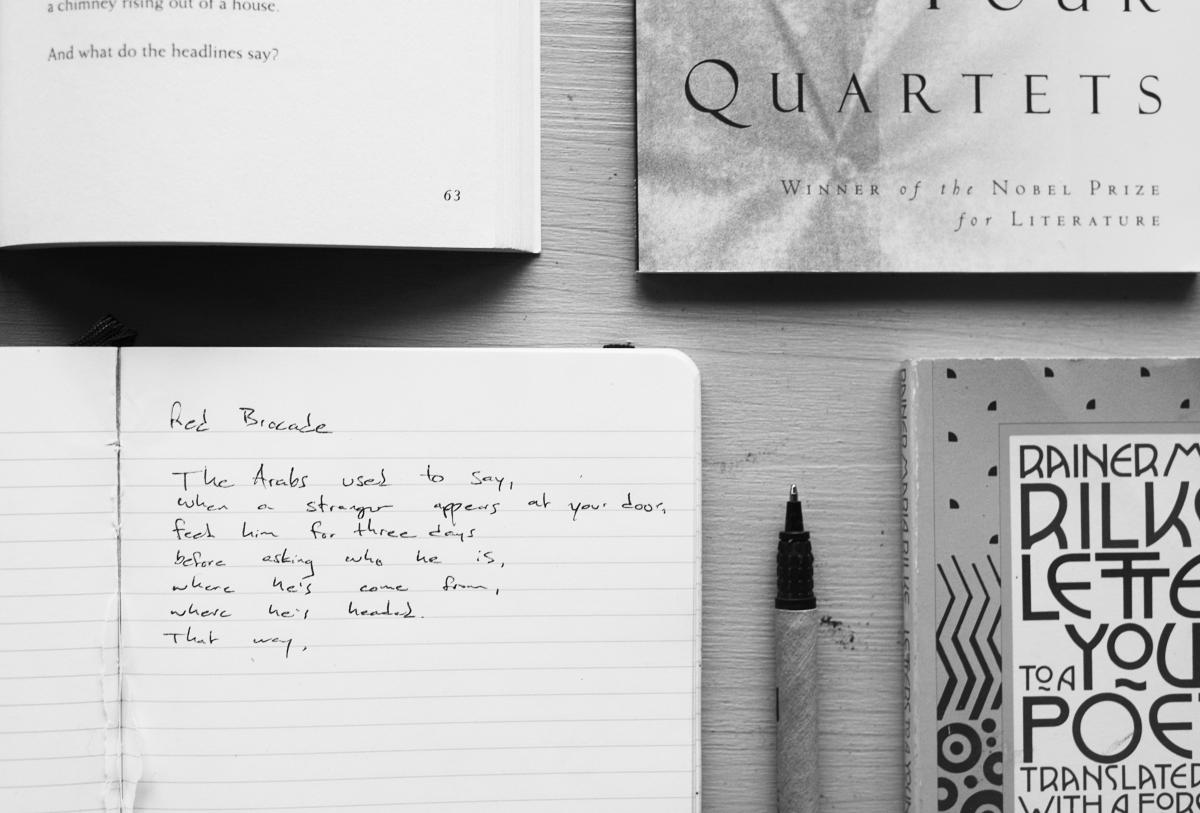 a chimney rising out of a house.
And what do the headlines say?
63
FOUR
QUARTETS
WINNER of the NOBEL PRIZE
for LITERATURE
Red Brocade
The Arabs used to say,
when a stranger appears at your door,
feed him for three days
before asking who he is,
where he's come from,
where he's headed.
That way,
RAINER M
RILK
LETTE
TO A YOU
POE
TRANSLATED
WITH A FOR
RAINER MARIA RILKE